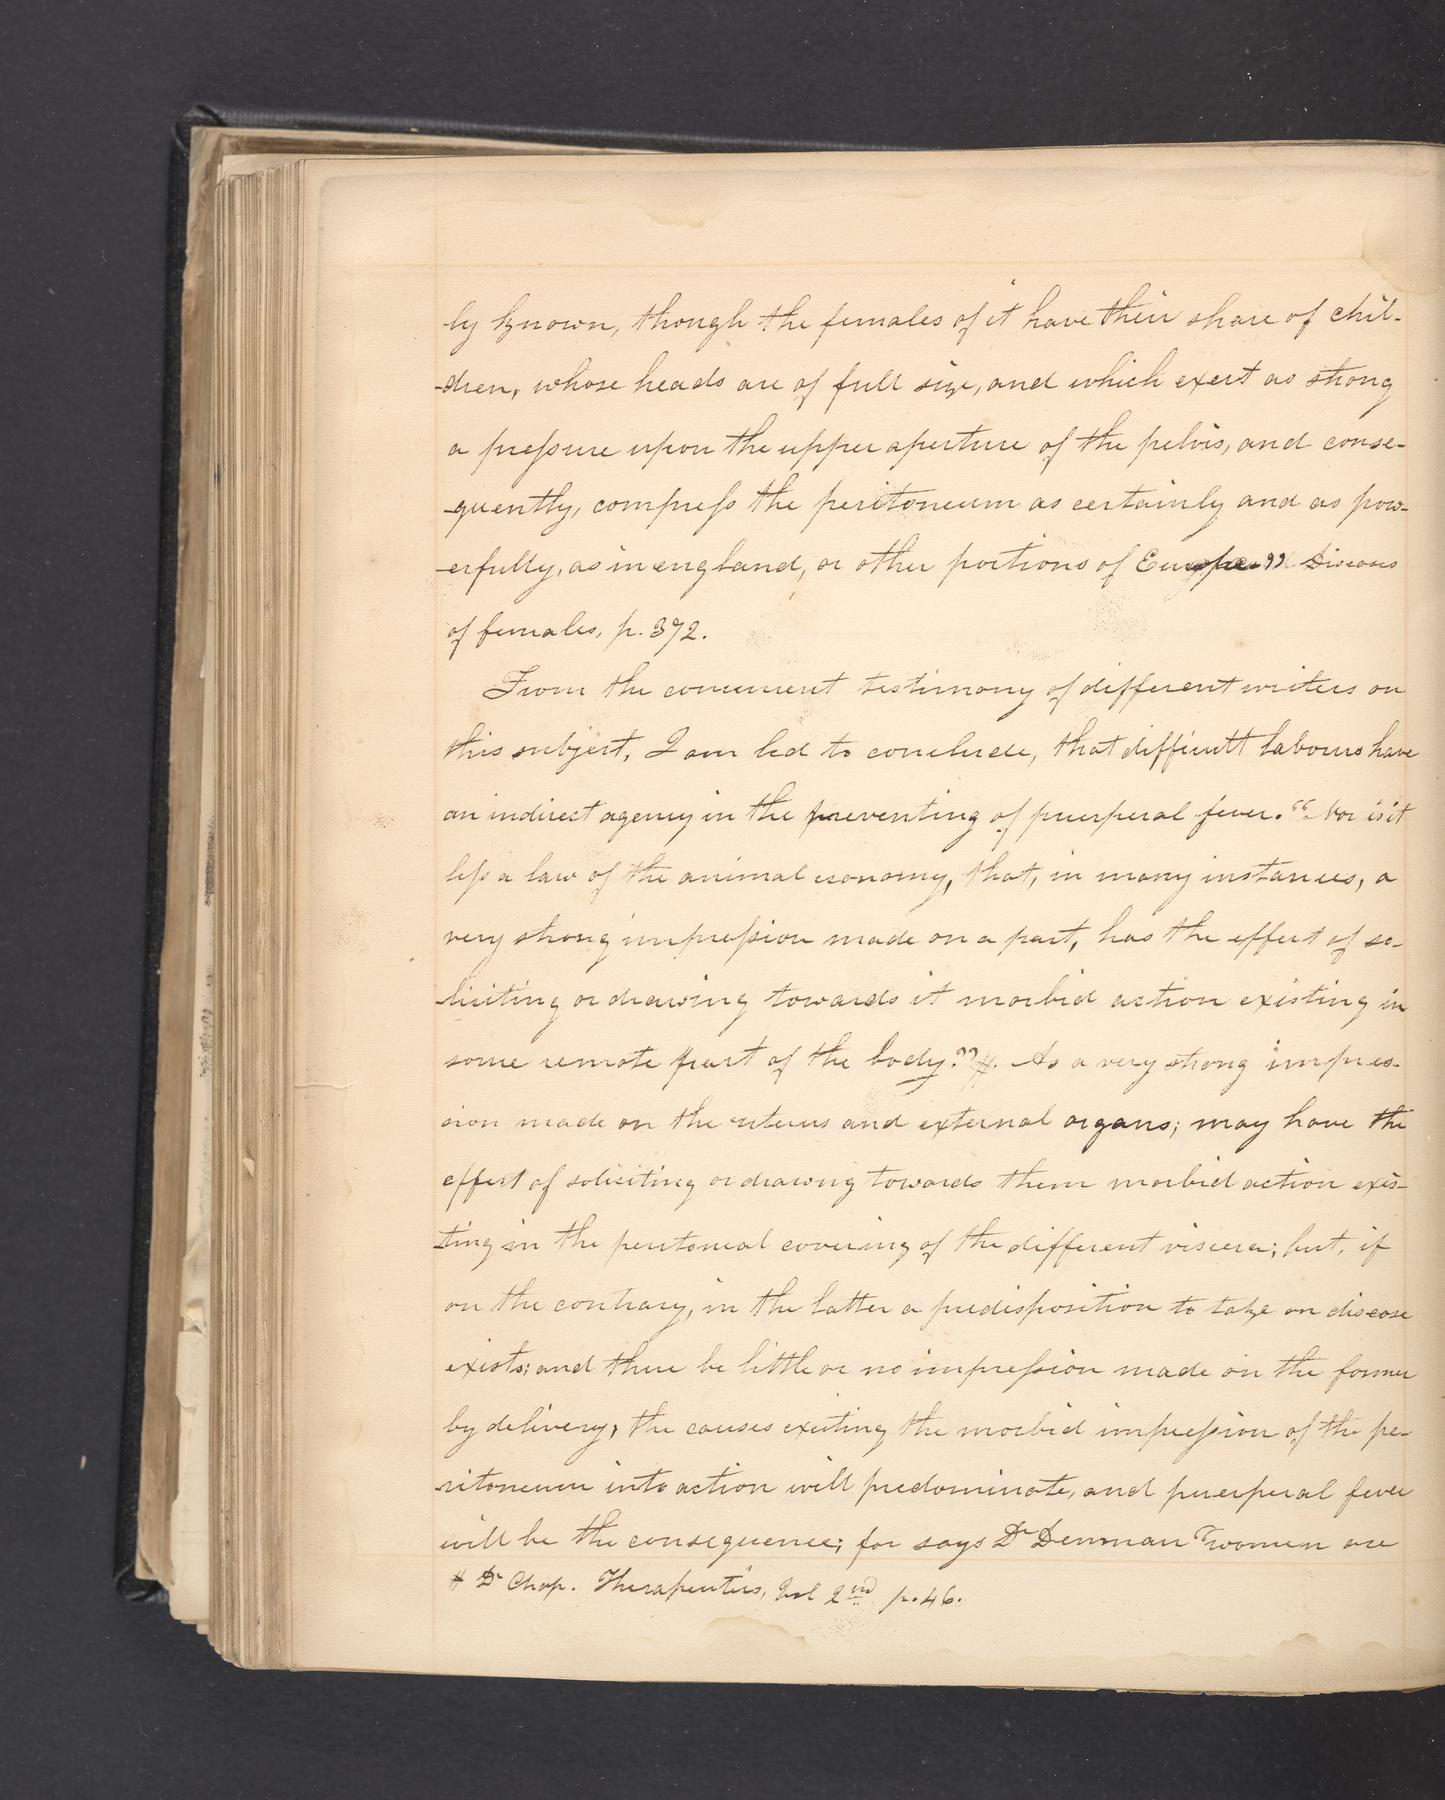 ly known, though the females of it have their share of chil-
-dren, whose heads are of full size, and which exert as strong
a pressure upon the upper aperture of the pelvis, and conse-
-quently, compress the peritoneum as certainly and as pow-
-erfully, as in england, or other portions of Europe." Diseases
of females, p. 372.
From the concurrent testimony of different writers on
this subject, I am led to conclude, that difficult labours have
an indirect agency in the preventing of puerperal fever. "Nor is it
less a law of the animal economy, that, in many instances, a
very strong impression made on a part, has the effect of so-
-liciting or drawing towards it morbid action existing in
some remote part of the body." #. As a very strong impres-
sion made on the uterus and external organs; may have the
effect of soliciting or drawing towards them morbid action exis-
-ting in the peritoneal covering of the different viscera; but, if
on the contrary, in the latter a predisposition to take on disease
exists; and there be little or no impression made on the former
by delivery, the causes exciting the morbid impression of the pe-
-ritoneum into action will predominate, and puerperal fever
will be the consequence; for says Dr Denman "women are
# Dr Chap. Therapeutics, Vol 2nd p. 46.